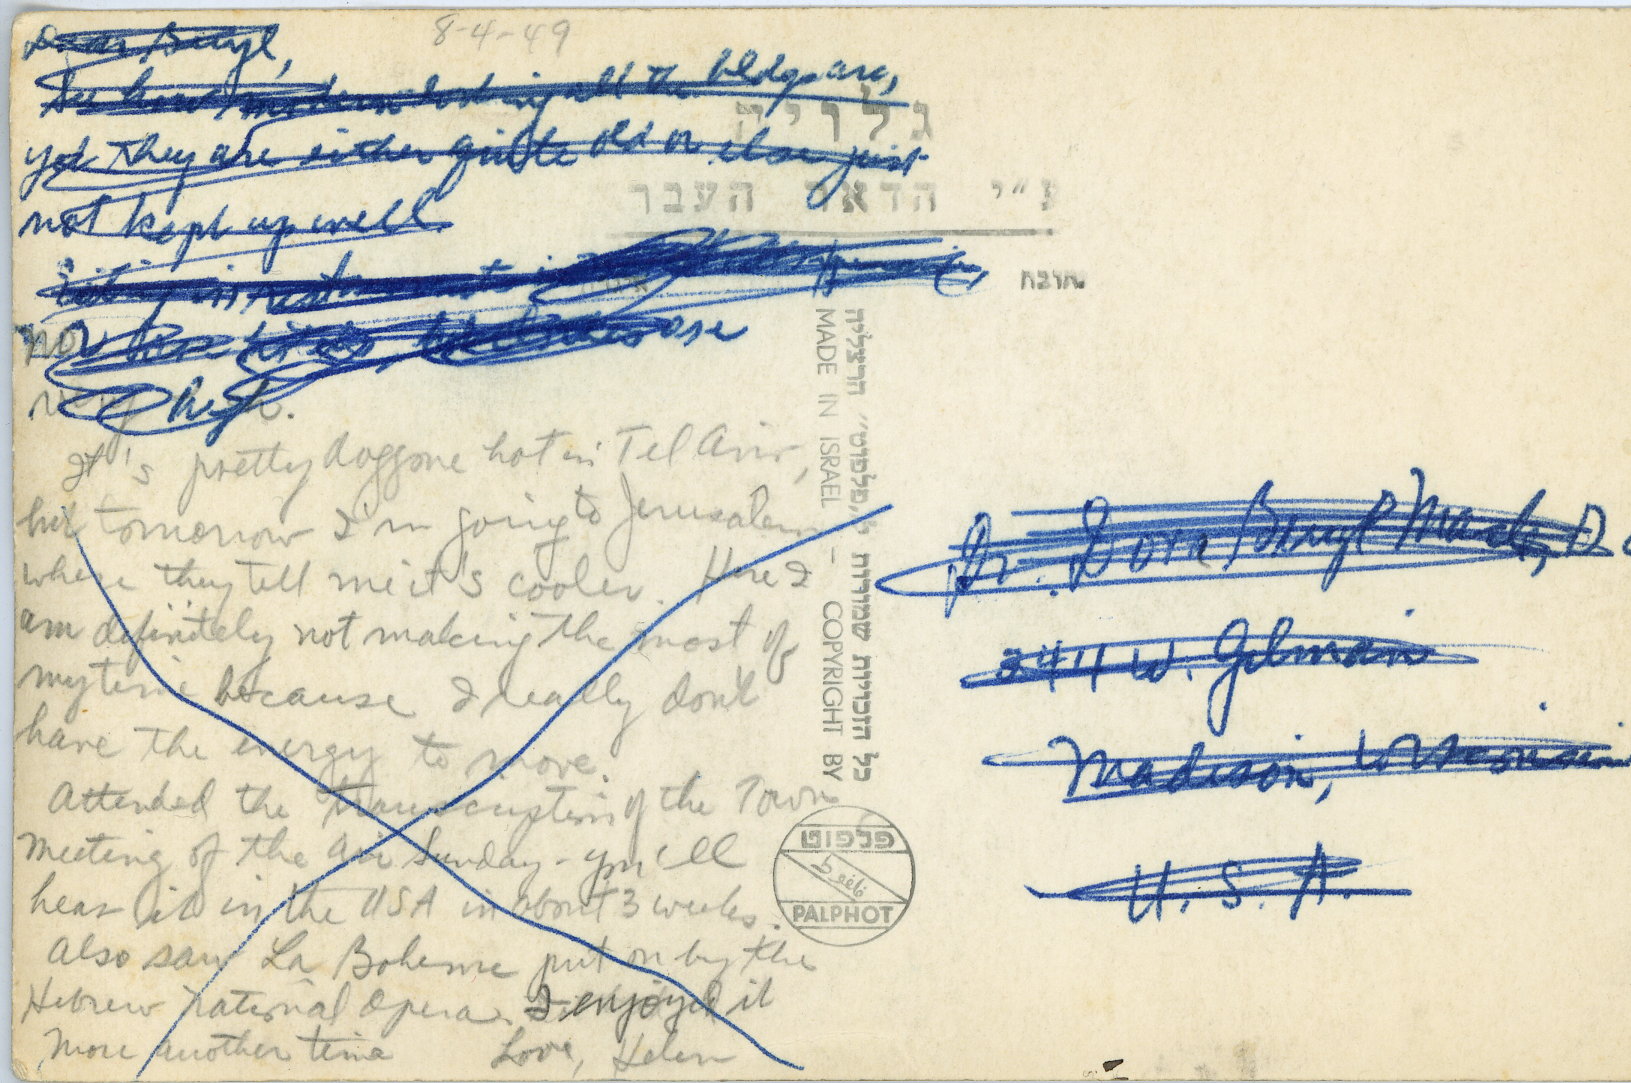 8-4-49
Dear Beryl,
See how modern looking all the bldgs are,
yet they are either quite old or else just
not kept up well.
Eating in restaurants is
nor are
very high.
It's pretty doggone hot in Tel Aviv,
but tomorrow I'm going to Jerusalem
where they tell me it's cooler. Here I
am definitely not making the most of
my time because I really don't
have the energy to move.
Attended the transcription of the Town
Meeting of the Air Sunday - you'll
hear it in the USA in about 3 weeks.
Also saw La Boheme put on by the
Hebrew National Opera. I enjoyed it
More another time Love, Helen
גלויה
ע״י הדאר העבר
MADE IN ISRAEL – COPYRIGHT BY
כל הזכויות שמורות
פלפוט
PALPHOT
Dr. Dora Beryl
2411 W. Gilman
Madison, Wisconsin
U. S. A.